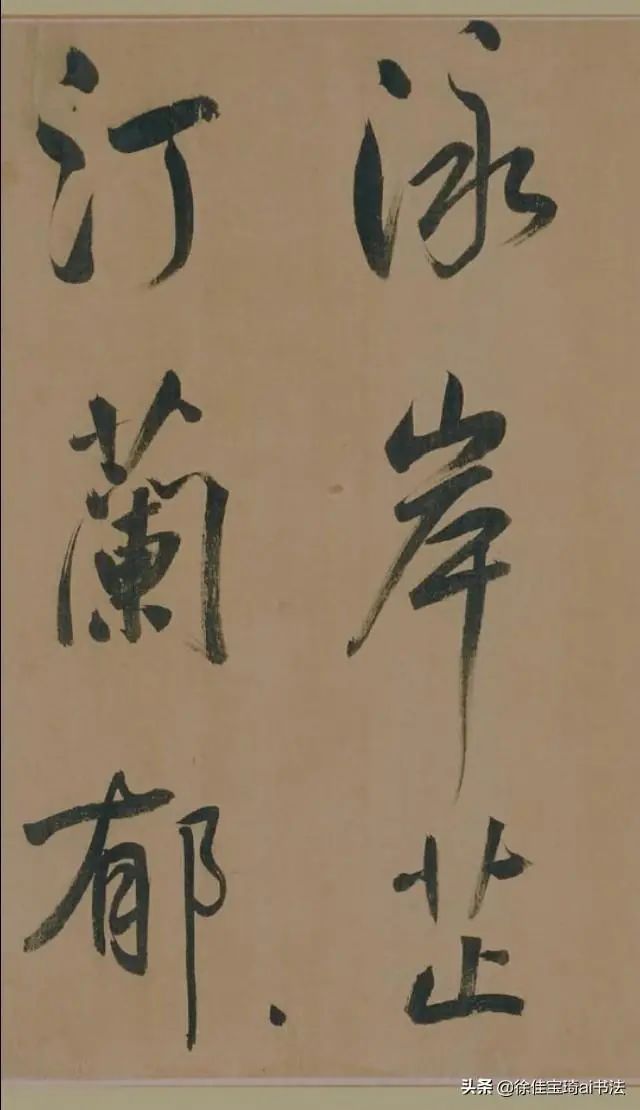 泳岸芷
汀蘭郁
头条 @徐佳宝琦ai书法